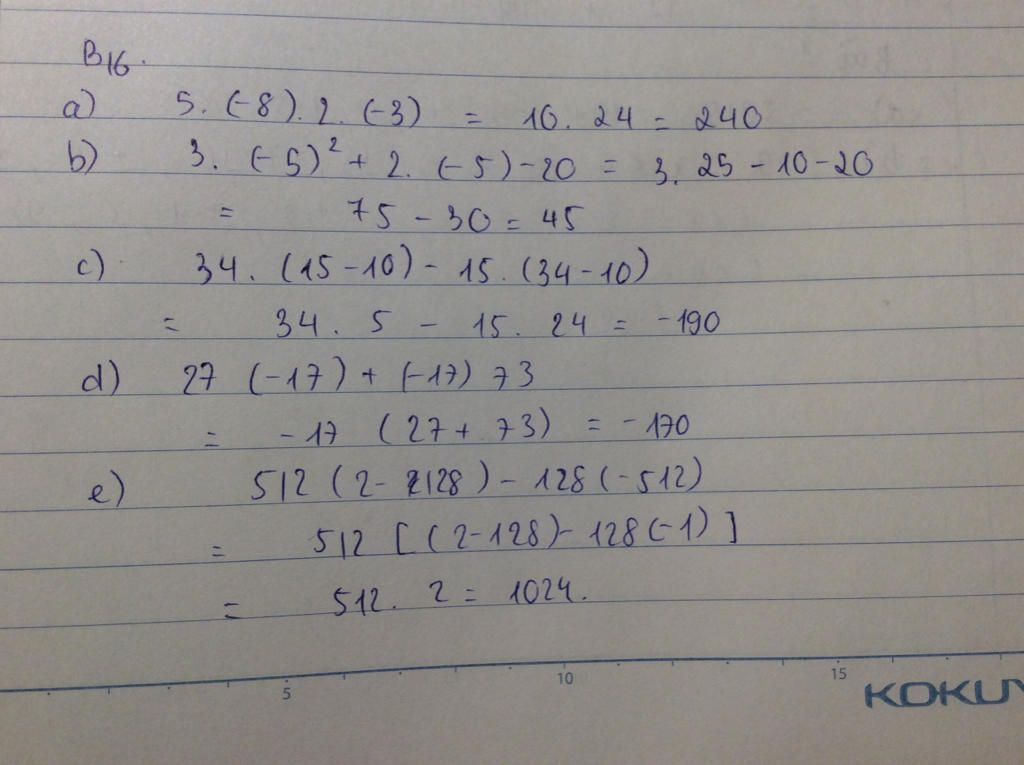 B16.
a) 5. (-8). 2. (-3) = 10. 24 = 240
b) 3. (-5)² + 2. (-5) - 20 = 3. 25 - 10 - 20
= 75 - 30 = 45
c) 34. (15 - 10) - 15. (34 - 10)
= 34. 5 - 15. 24 = -190
d) 27 (-17) + (-17) 73
= -17 (27 + 73) = -170
e) 512 (2 - 128) - 128 (-512)
= 512 [(2 - 128) - 128 (-1)]
= 512. 2 = 1024.
5 10 15